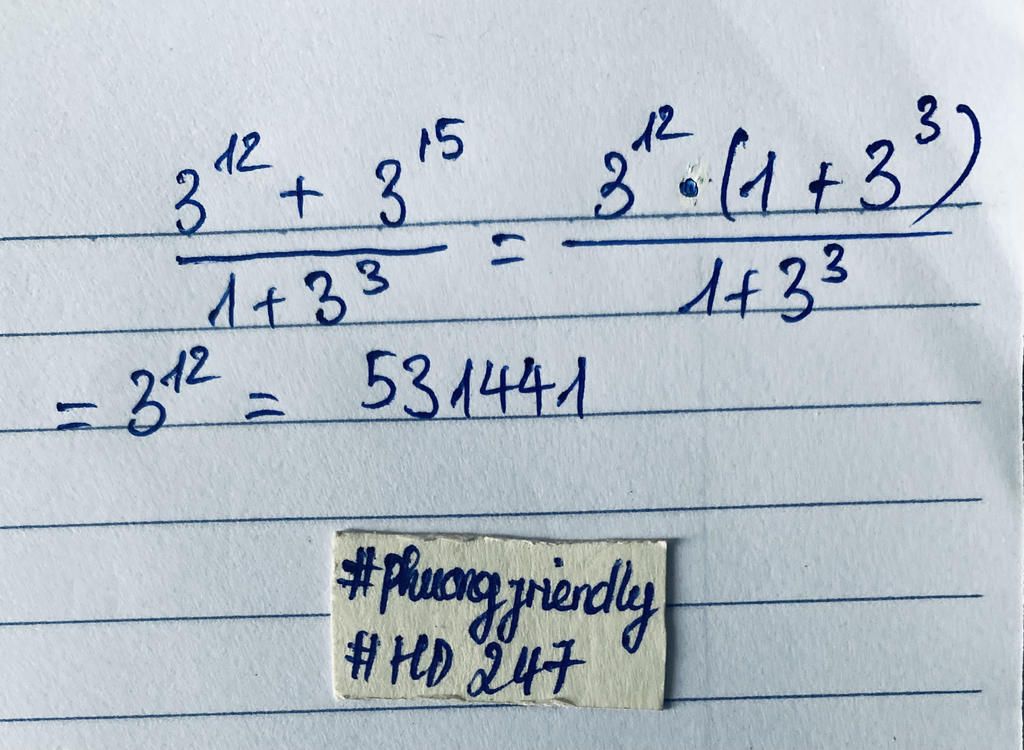 3¹² + 3¹⁵ / 1 + 3³ = 3¹² · (1 + 3³) / 1 + 3³
= 3¹² = 531441
#phuongfriendly
#HD 247